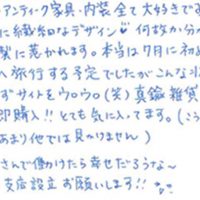 アンティーク家具・内装全て大好きです
に繊細なデザイン♡何故か分か
製に惹かれます。本当は7月に初め
へ旅行する予定でしたがこんな
ずサイトをウロウロ(笑)真鍮雑貨
即購入!!とても気に入ってます。(こう
あまり他では見かけません)
さんで働けたら幸せだろうな〜
支店設立お願いします!!